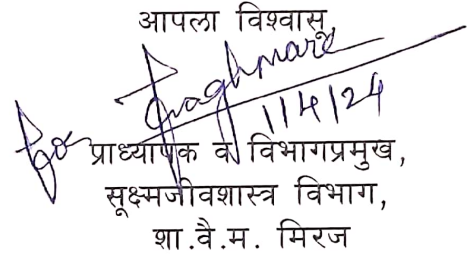 आपला विश्वासू,
for Gwaghmare
1/4/24
प्राध्यापक व विभागप्रमुख,
सूक्ष्मजीवशास्त्र विभाग,
शा.वै.म. मिरज